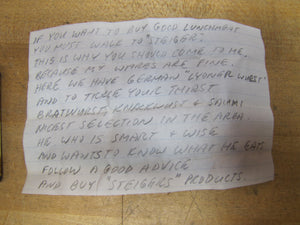 IF YOU WANT TO BUY GOOD LUNCHMEAT
YOU MUST WALK TO "STEIGER".
THIS IS WHY YOU SHOULD COME TO ME.
BECAUSE MY WURRES ARE FINE.
HERE WE HAVE GERMAN "LYONER WURST"
AND TO TICKLE YOUR THIRST
BRATWORST, KNOCKWUST + SALAMI
NICEST SELECTION IN THE AREA.
HE WHO IS SMART + WISE
AND WANTS TO KNOW WHAT HE EATS
FOLLOW A GOOD ADVICE
AND BUY "STEIGERS" PRODUCTS.